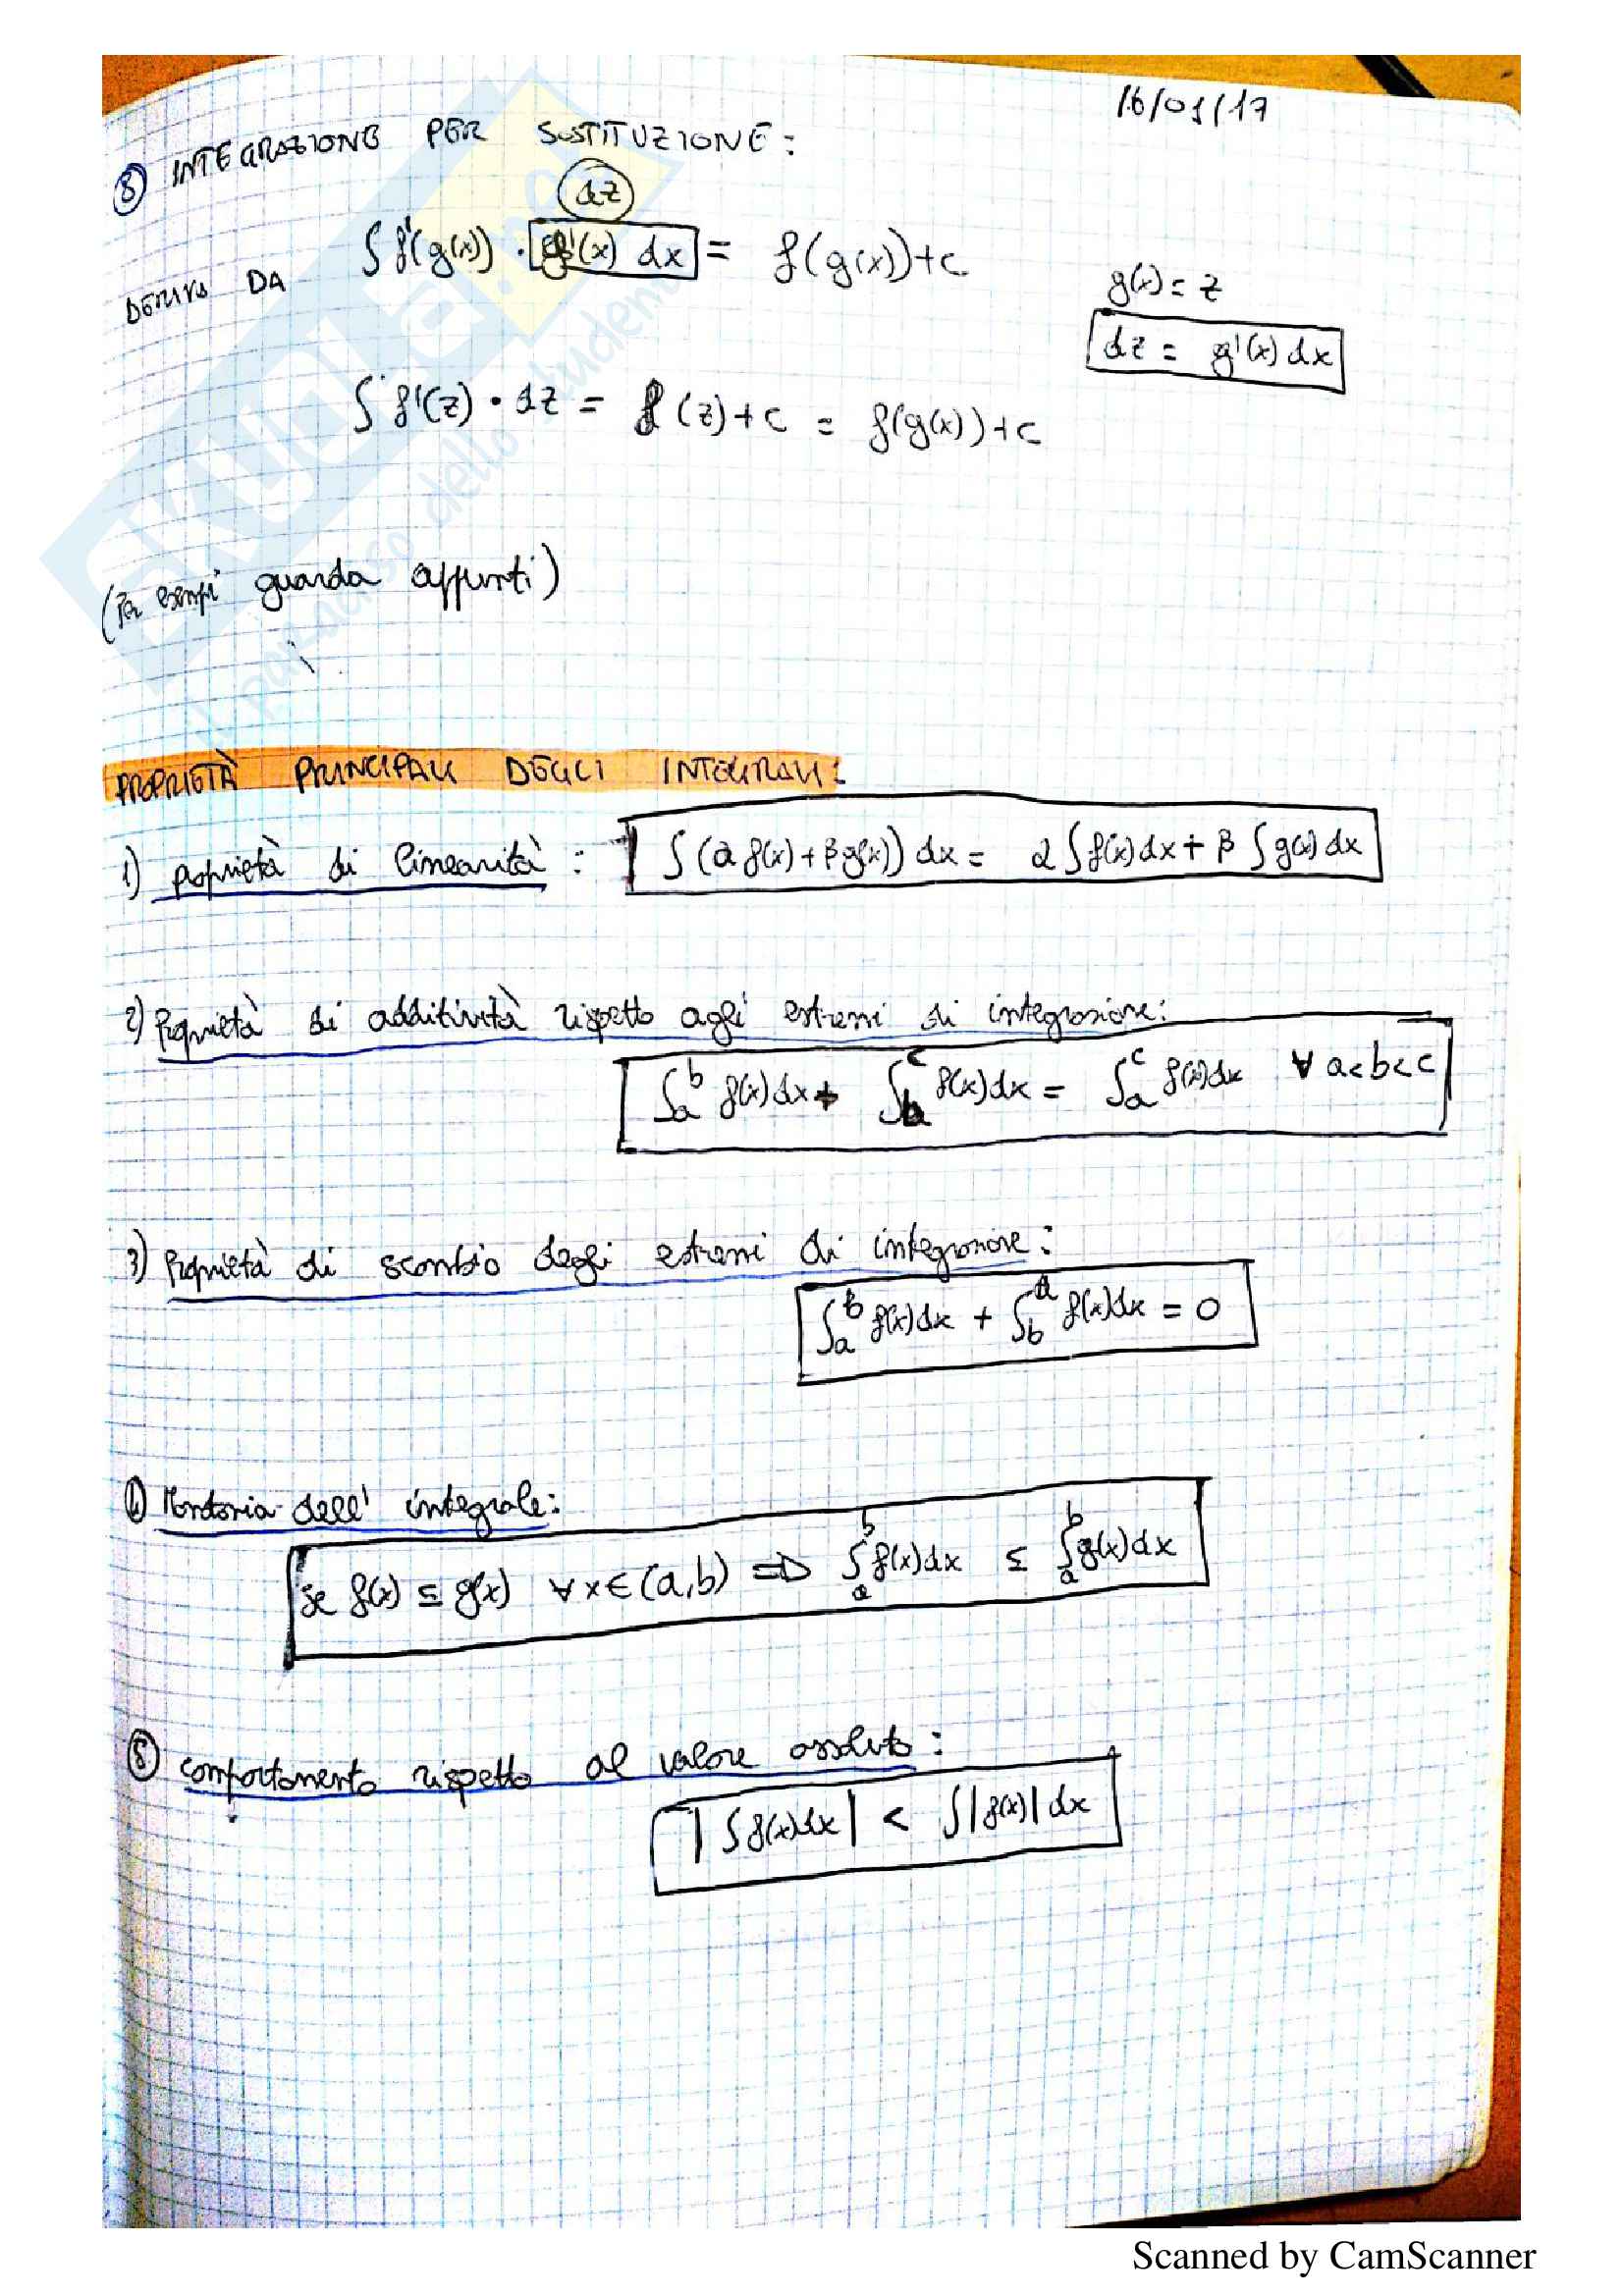 16/01/17
⑧ INTEGRAZIONE PER SOSTITUZIONE:
dz
DERIVA DA ∫ f'(g(x)) · g'(x) dx = f(g(x))+c
g(x) = z
dz = g'(x) dx
∫ f'(z) · dz = f(z)+c = f(g(x))+c
(Per esempi guarda appunti)
PROPRIETÀ PRINCIPALI DEGLI INTEGRALI:
1) proprietà di linearità: ∫(α f(x) + β g(x)) dx = α ∫f(x) dx + β ∫g(x) dx
2) Proprietà di additività rispetto agli estremi di integrazione:
∫ₐᵇ f(x) dx + ∫_b^c f(x) dx = ∫ₐᶜ f(x) dx ∀ a<b<c
3) Proprietà di scambio degli estremi di integrazione:
∫ₐᵇ f(x) dx + ∫_b^a f(x) dx = 0
4) Monotonia dell' integrale:
se f(x) ≤ g(x) ∀x∈(a,b) ⇒ ∫ₐᵇ f(x) dx ≤ ∫ₐᵇ g(x) dx
⑤ comportamento rispetto al valore assoluto:
|∫f(x)dx| < ∫|f(x)| dx
skuola.net
il paradiso dello studente
Scanned by CamScanner